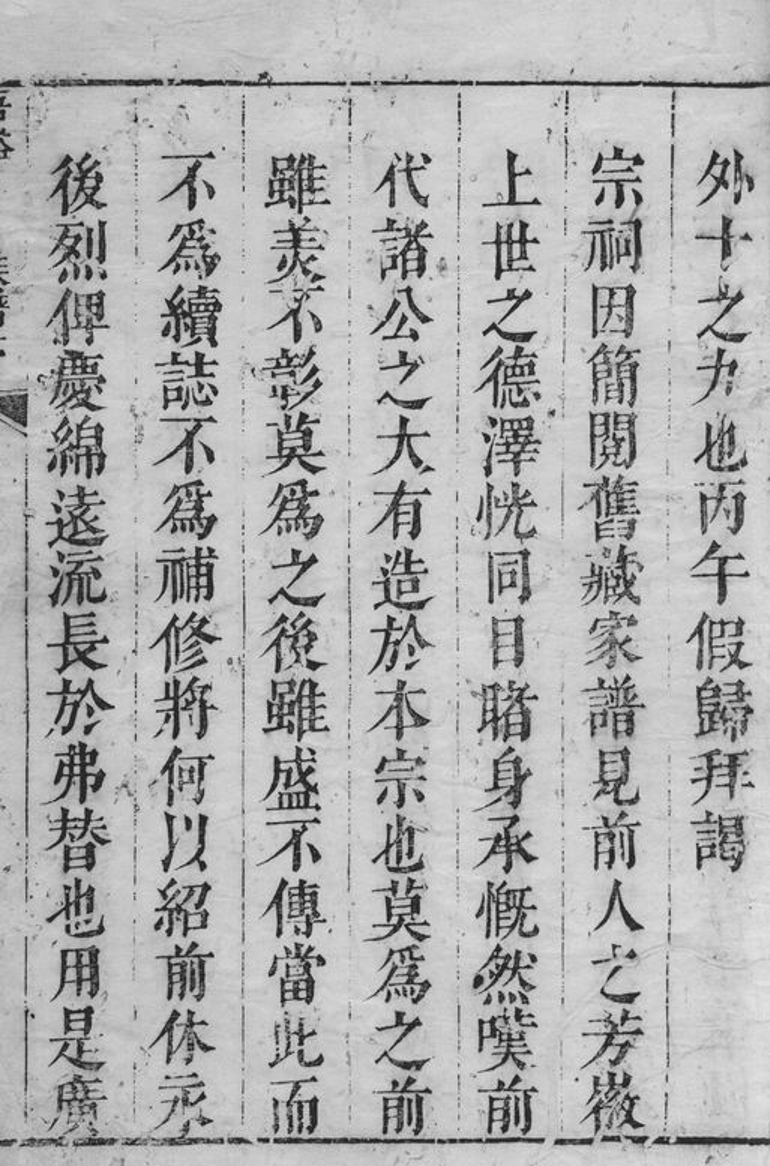 外十之力也丙午假歸拜謁
宗祠因簡閱舊藏家譜見前人之芳徽
上世之德澤恍同目睹身承慨然嘆前
代諸公之大有造於本宗也莫爲之前
雖美不彰莫爲之後雖盛不傳當此而
不爲續誌不爲補修將何以紹前休永
後烈俾慶綿遠流長於弗替也用是廣